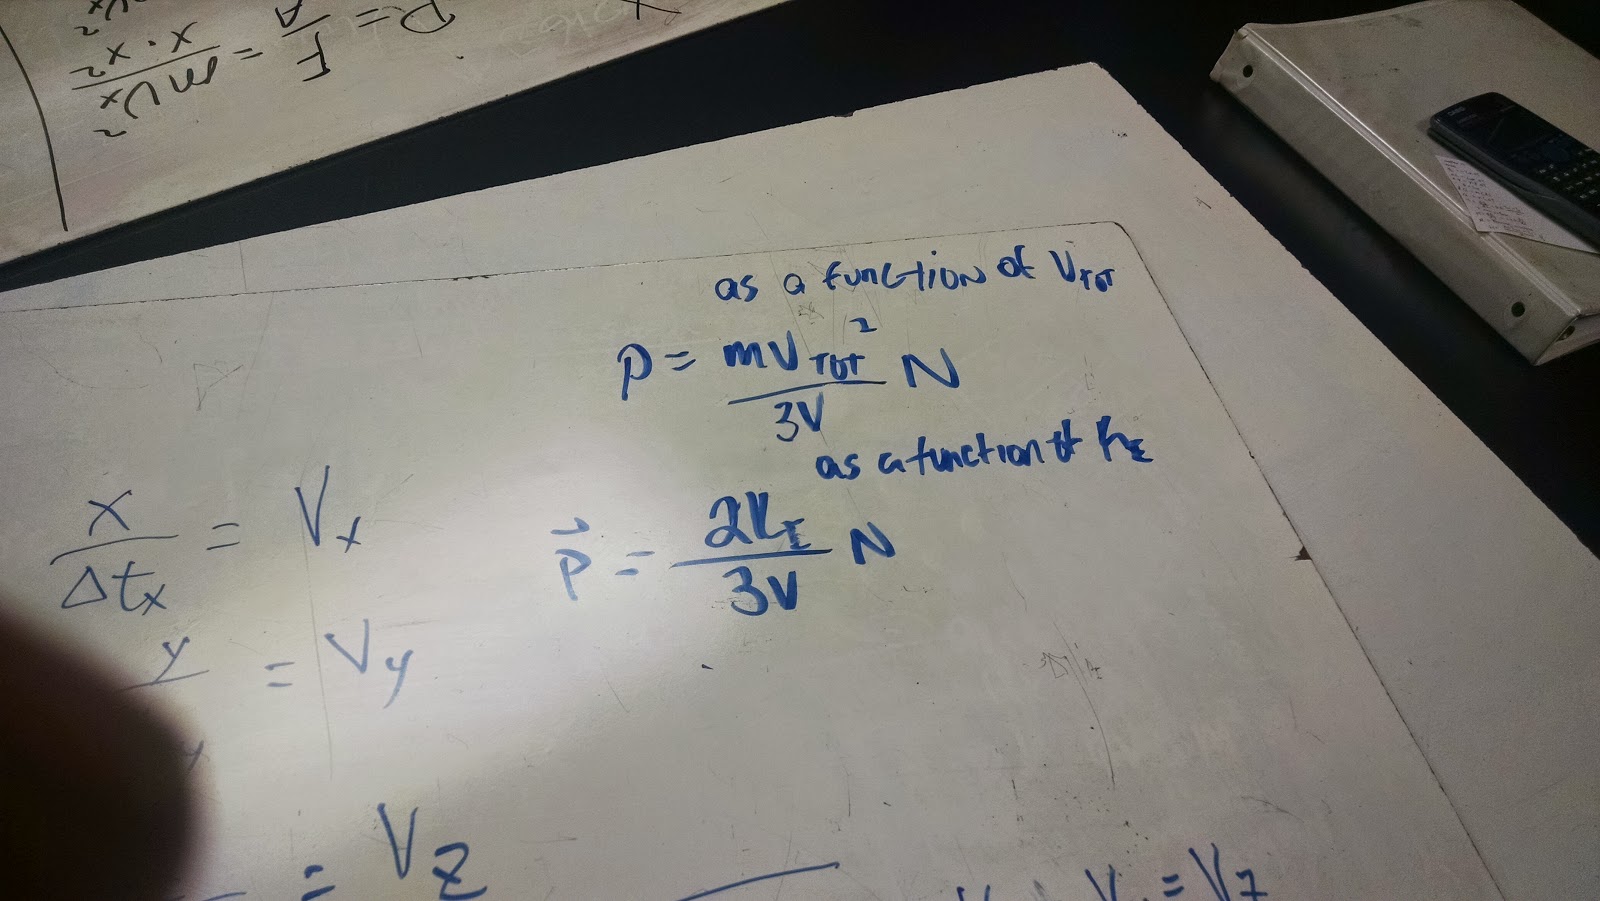 P = F/A = mVx²/x·x²
as a function of VTOT
P = mVTOT²/3V N
as a function of KE
P⃗ = 2KE/3V N
x/Δtx = Vx
y = Vy
= Vz
= Vz